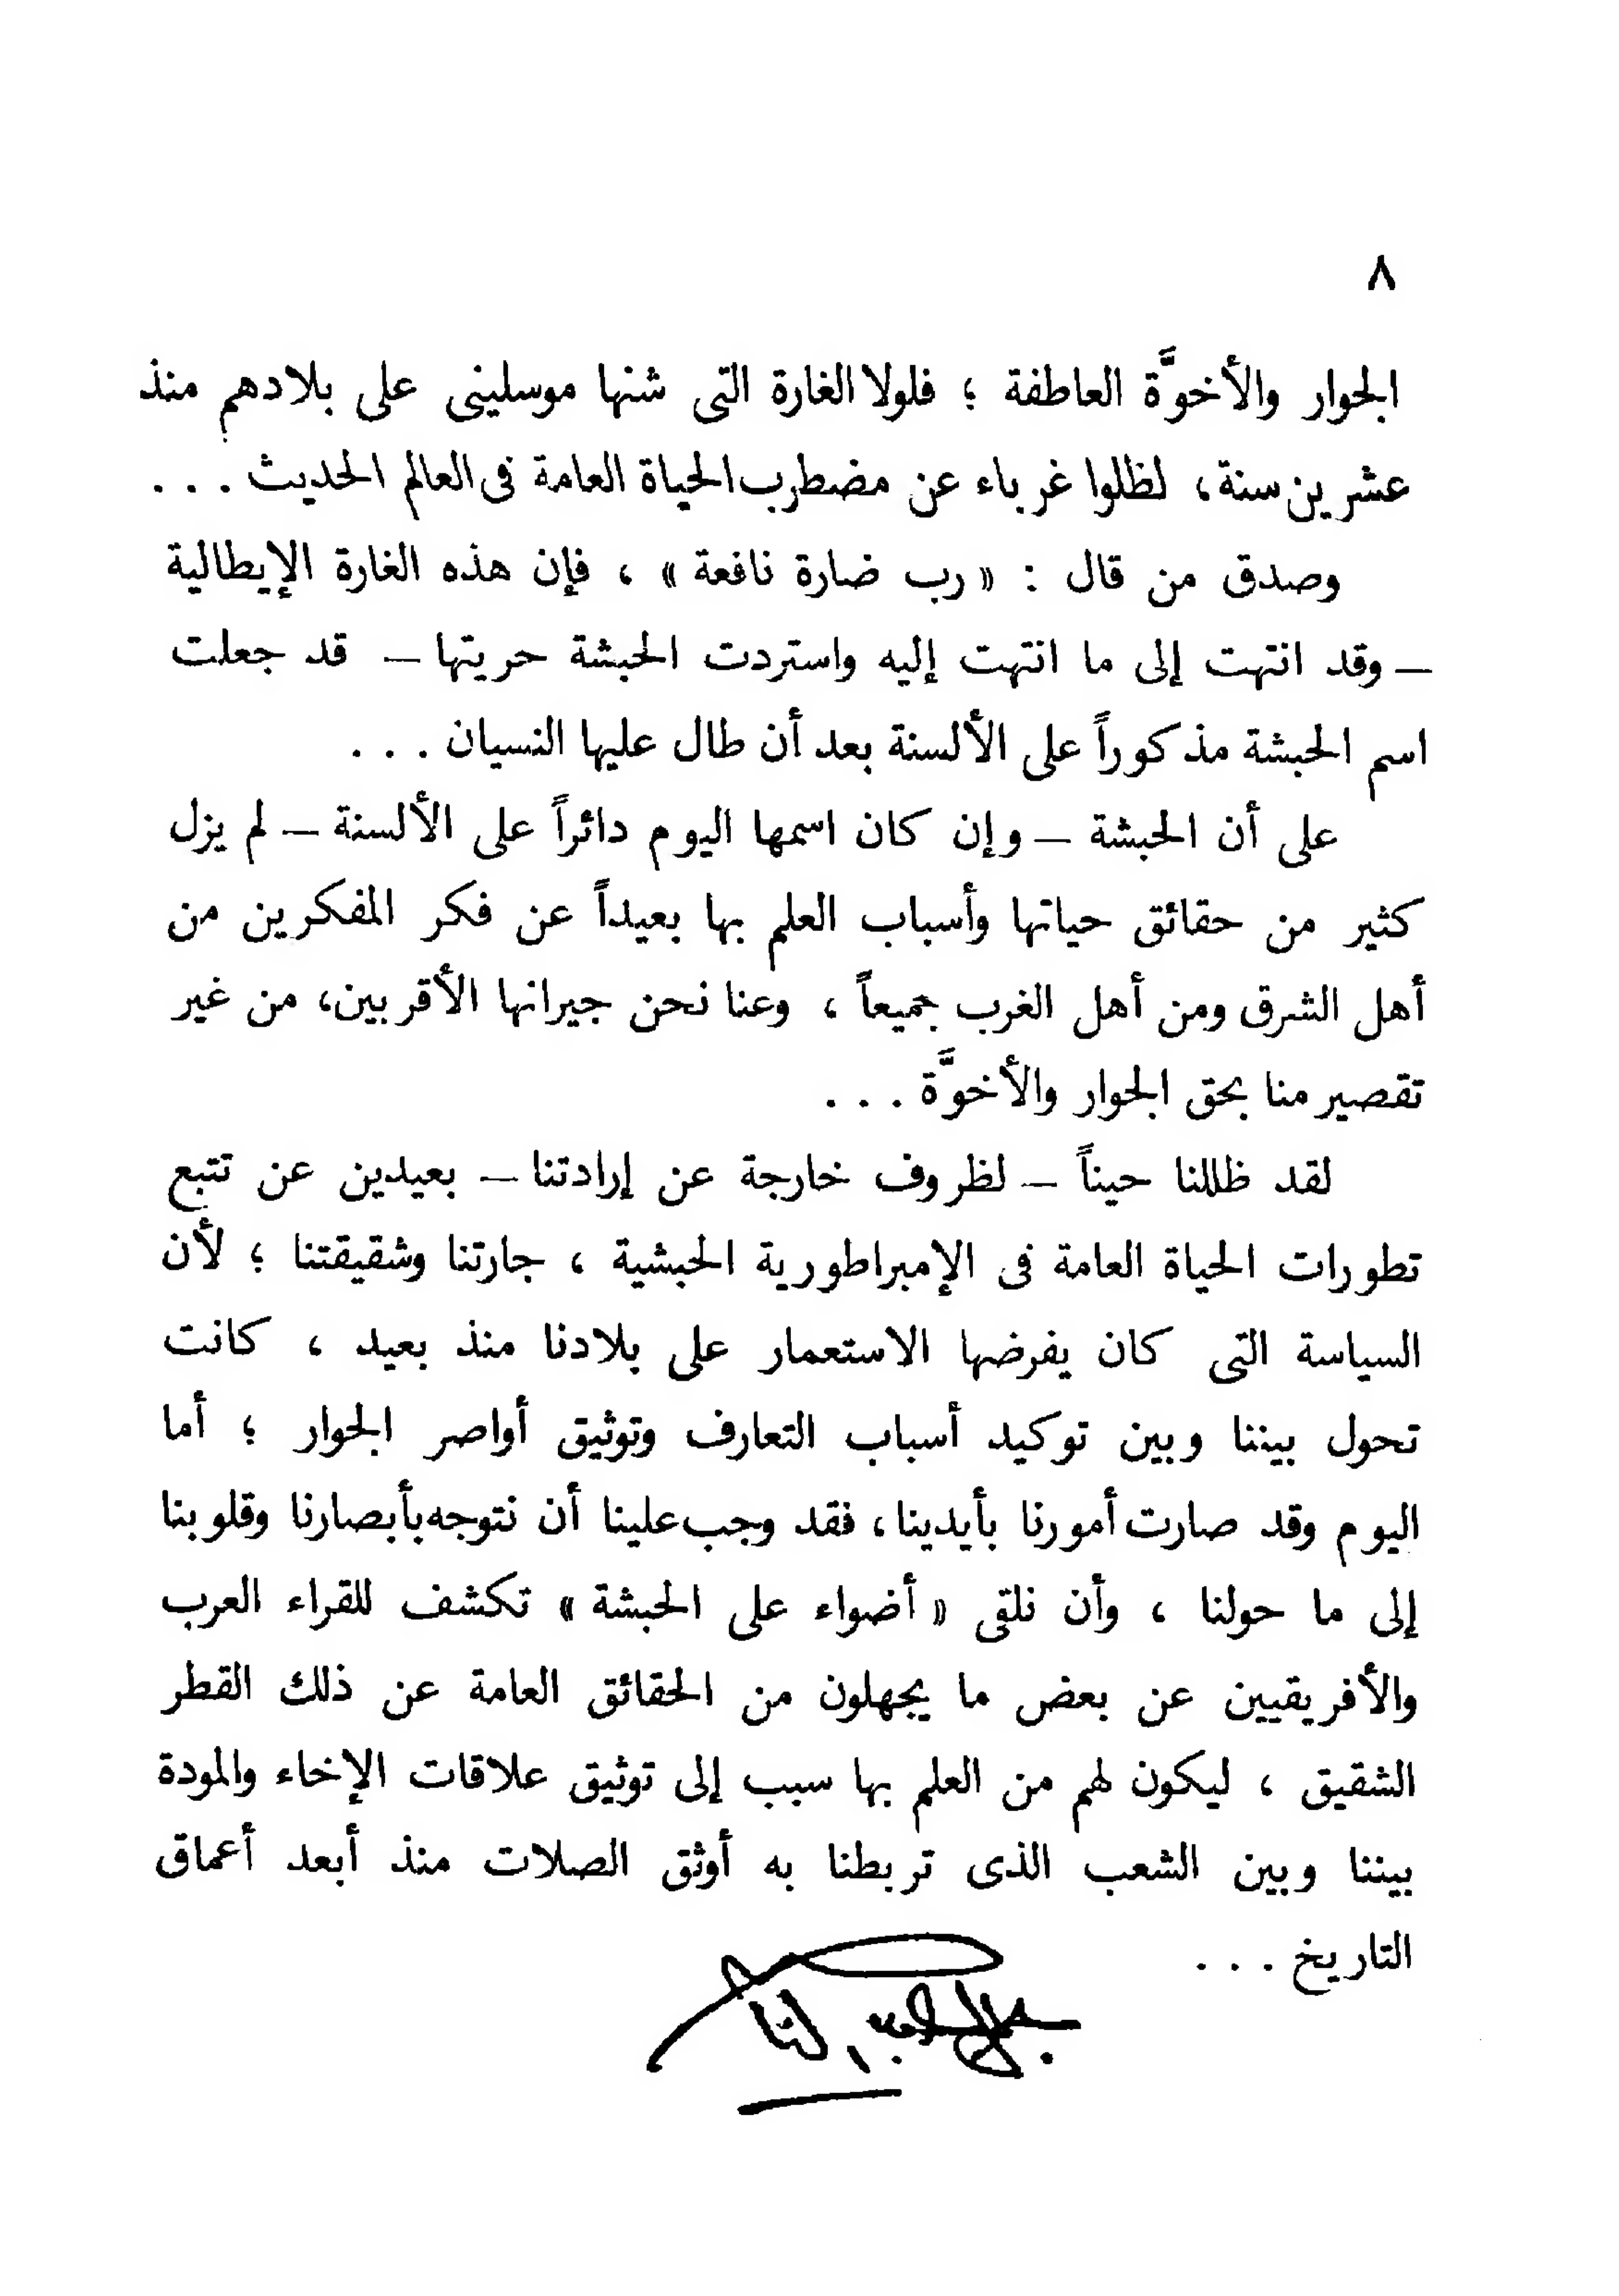 ٨
الجوار والأخوَّة العاطفة ؛ فلولا الغارة التى شنها موسلينى على بلادهم منذ
عشرين سنة، لظلوا غرباء عن مضطرب الحياة العامة فى العالم الحديث . . .
وصدق من قال : « رب ضارة نافعة » ، فإن هذه الغارة الإيطالية
– وقد انتهت إلى ما انتهت إليه واستردت الحبشة حريتها – قد جعلت
اسم الحبشة مذكوراً على الألسنة بعد أن طال عليها النسيان . . .
على أن الحبشة – وإن كان اسمها اليوم دائراً على الألسنة – لم يزل
كثير من حقائق حياتها وأسباب العلم بها بعيداً عن فكر المفكرين من
أهل الشرق ومن أهل الغرب جميعاً ، وعنا نحن جيرانها الأقربين، من غير
تقصير منا بحق الجوار والأخوَّة . . .
لقد ظللنا حيناً – لظروف خارجة عن إرادتنا – بعيدين عن تتبع
تطورات الحياة العامة فى الإمبراطورية الحبشية ، جارتنا وشقيقتنا ؛ لأن
السياسة التى كان يفرضها الاستعمار على بلادنا منذ بعيد ، كانت
تحول بيننا وبين توكيد أسباب التعارف وتوثيق أواصر الجوار ؛ أما
اليوم وقد صارت أمورنا بأيدينا، فقد وجب علينا أن نتوجه بأبصارنا وقلوبنا
إلى ما حولنا ، وأن نلقى « أضواء على الحبشة » تكشف للقراء العرب
والأفريقيين عن بعض ما يجهلون من الحقائق العامة عن ذلك القطر
الشقيق ، ليكون لهم من العلم بها سبب إلى توثيق علاقات الإخاء والمودة
بيننا وبين الشعب الذى تربطنا به أوثق الصلات منذ أبعد أعماق
التاريخ . . .